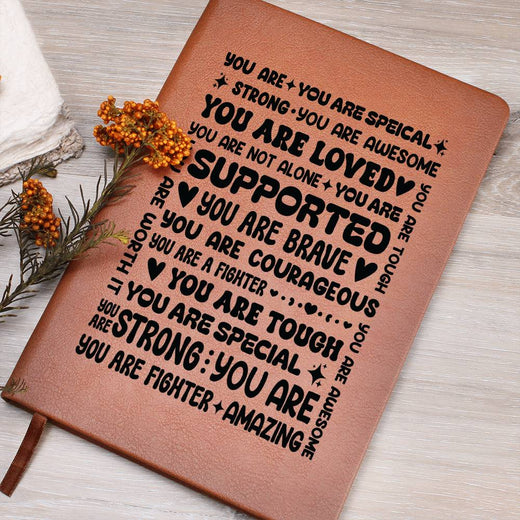 YOU ARE✦YOU ARE SPEICAL✦
STRONG•YOU ARE AWESOME
YOU ARE LOVED♥
YOU ARE NOT ALONE✦YOU ARE
SUPPORTED
♥YOU ARE BRAVE
YOU ARE COURAGEOUS
YOU ARE A FIGHTER
♥YOU ARE TOUGH
YOU ARE SPECIAL✦
YOU ARE
STRONG:YOU ARE
YOU ARE FIGHTER✦AMAZING
YOU ARE WORTH IT
YOU ARE TOUGH
YOU ARE AWESOME